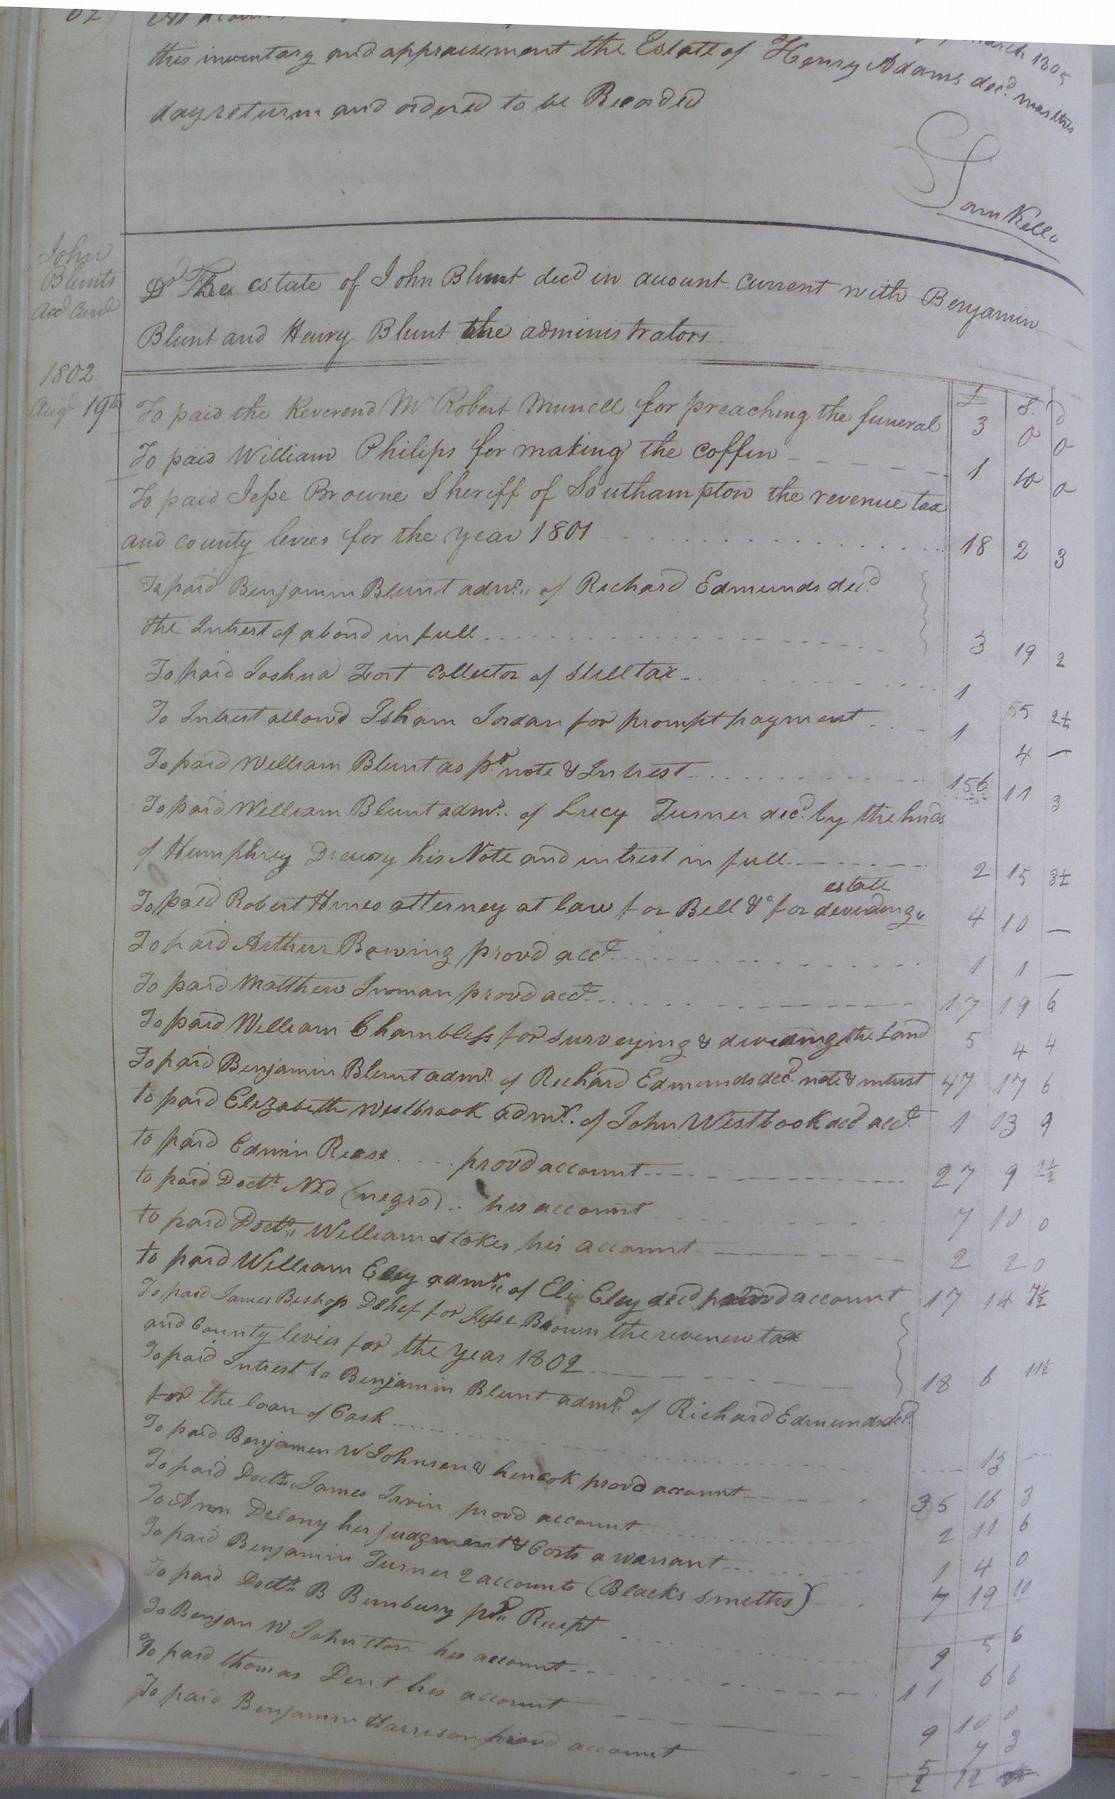 this inventary and appraisement the Estate of Henry Adams decd was this
day return and ordered to be Recorded
Sam Kello
John
Blunts
Dr The estate of John Blunt decd in account current with Benjamin
Blunt and Henry Blunt the administrators
1802
Augt 19th
£ S. D
To paid the Reverend Mr Robert Murrell for preaching the funeral 3 0 0
To paid William Philips for making the coffin 1 10 0
To paid Jesse Browne Sheriff of Southampton the revenue tax
and county levies for the year 1801 18 2 3
To paid Benjamin Blunt admr. of Richard Edmunds decd
the Intrest of a bond in full 3 19 2
To paid Joshua Fort Collector of Still tax 1
To Intrest allowd Isham Jordan for prompt payment 1 4 —
To paid William Blunt as pr note & Intrest 156 11 3
To paid William Blunt admr. of Lucy Turner decd by the hnds
of Humphrey Drewry his Note and intrest in full 2 15 3½
estate
To paid Robert Hines attorney at law for Bell &c for deviding 4 10 —
To paid Arthur Bowing provd acct 1 1 —
To paid Matthew Inman provd acct 17 19 6
To paid William Chambless for surveying & deviding the Land 5 4 4
To paid Benjamin Blunt admr. of Richard Edmunds decd note & intrest 47 17 6
to paid Elizabeth Westbrook admx. of John Westbook decd acct 1 13 9
to paid Edwin Reese provd account 27 9 2½
to paid Doctr Ned (negro) his account 7 10 0
to paid Doctr William Stokes his account 2 2 0
to paid William Eley admr of Eli Eley decd provd account 17 14 7½
To paid James Bishop D Shef for Jesse Brown the revenew tax
and County levies for the year 1802 18 6 11½
To paid Intrest to Benjamin Blunt admr of Richard Edmunds decd
for the loan of Cash 13 —
To paid Benjamen W Johnson & hencok provd account 35 16 3
To paid Doctr James Irvin provd account 2 11 6
To Ann Delony her judgment & Costs a warrant 1 4 0
To paid Benjamin Turner 2 accounts (Blacks smiths) 7 19 11
To paid Doctr B Bunbury pr Recipt 9 5 6
To Benjan W Johnston his account 11 6 6
To paid thomas Dent his account 9 10 0
To paid Benjamin Harrison provd account 7 3
12